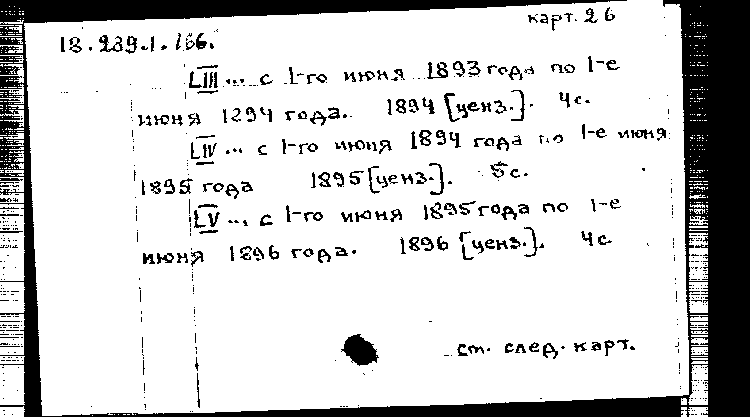 карт. 26
18.289.1.166.
LIII ... с 1-го июня 1893 года по 1-е
июня 1894 года. 1894 [ценз.]. 4с.
LIV ... с 1-го июня 1894 года по 1-е июня
1895 года 1895 [ценз.]. 5с.
LV ... с 1-го июня 1895 года по 1-е
июня 1896 года. 1896 [ценз.]. 4с
см. след. карт.